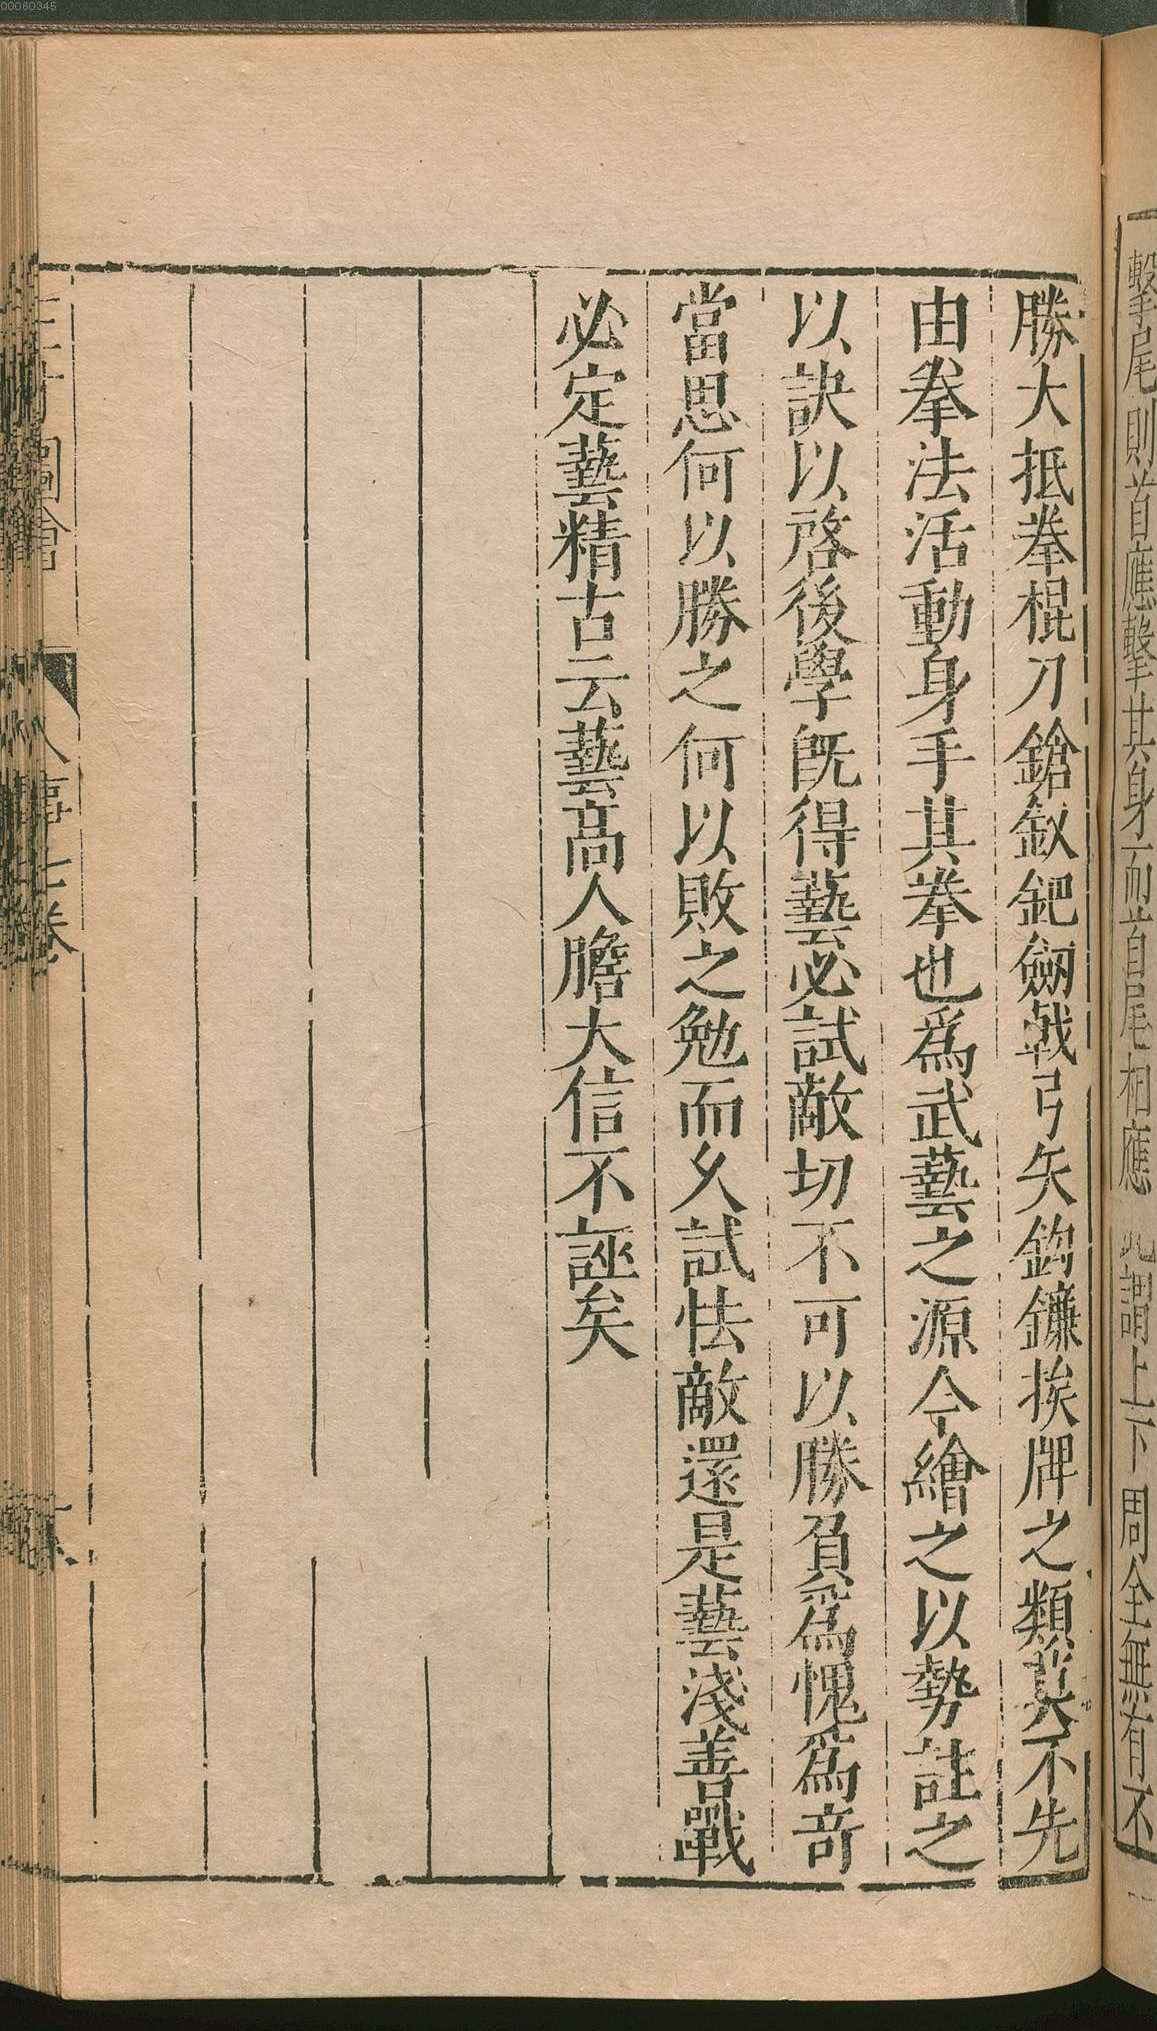 00060345
擊尾則首應擊其身而首尾相應此謂上下周全無有不
勝大抵拳棍刀鎗釵鈀劒戟弓矢鈎鐮挨牌之類莫不先
由拳法活動身手其拳也爲武藝之源今繪之以勢註之
以訣以啓後學旣得藝必試敵切不可以勝負爲愧爲竒
當思何以勝之何以敗之勉而乆試怯敵還是藝淺善戰
必定藝精古云藝高人膽大信不誣矣
圖會 人事七卷